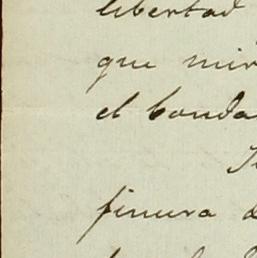 libertad
que mir
el bonda
finura d